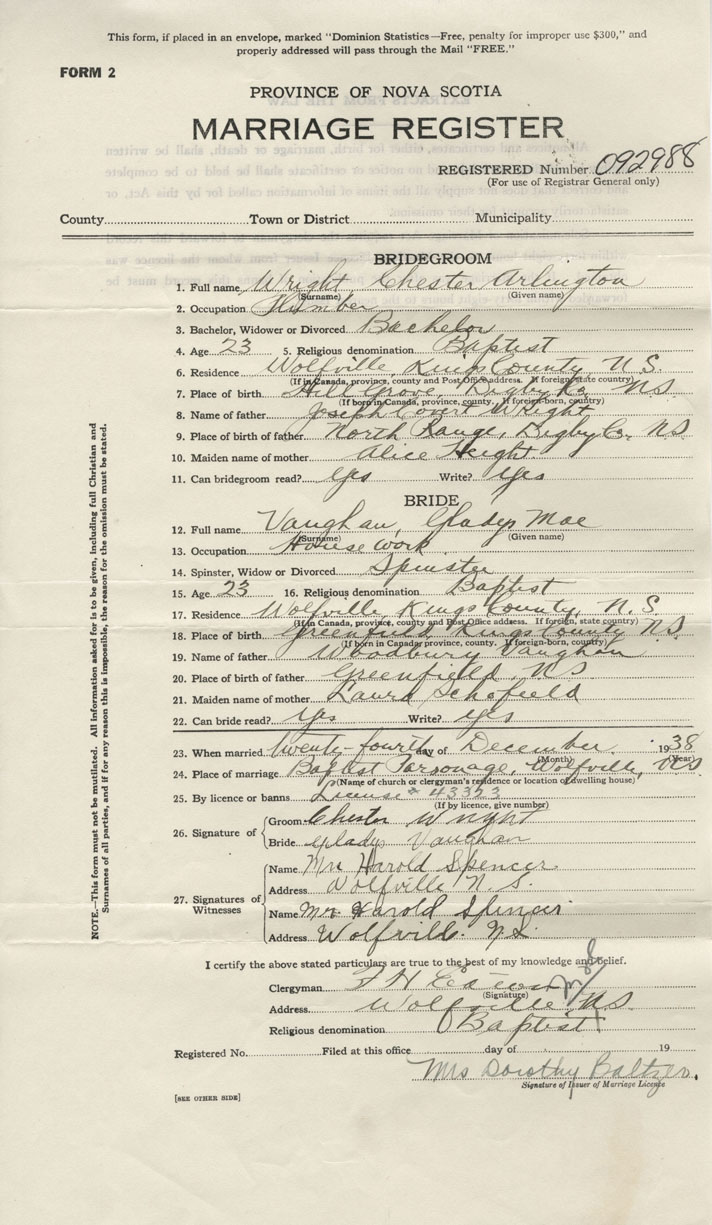 This form, if placed in an envelope, marked "Dominion Statistics—Free, penalty for improper use $300," and
properly addressed will pass through the Mail "FREE."
FORM 2
PROVINCE OF NOVA SCOTIA
MARRIAGE REGISTER
REGISTERED Number 092988
(For use of Registrar General only)
County Town or District Municipality
BRIDEGROOM
1. Full name Wright, Chester Arlington
(Surname) (Given name)
2. Occupation Plumber
3. Bachelor, Widower or Divorced Bachelor
4. Age 23 5. Religious denomination Baptist
6. Residence Wolfville, Kings County, N.S.
(If in Canada, province, county and Post Office address. If foreign, state country)
7. Place of birth Hill Grove, Digby Co. NS
(If born in Canada, province, county. If foreign-born, country)
8. Name of father Joseph Covert Wright
9. Place of birth of father North Range, Digby Co. NS
10. Maiden name of mother Alice Height
11. Can bridegroom read? yes Write? yes
BRIDE
12. Full name Vaughan, Gladys Mae
(Surname) (Given name)
13. Occupation House work
14. Spinster, Widow or Divorced Spinster
15. Age 23 16. Religious denomination Baptist
17. Residence Wolfville, Kings County, N.S.
(If in Canada, province, county and Post Office address. If foreign, state country)
18. Place of birth Greenfield, Kings County N.S.
(If born in Canada, province, county. If foreign-born, country)
19. Name of father Woodbury Vaughan
20. Place of birth of father Greenfield, NS
21. Maiden name of mother Laura Schofield
22. Can bride read? yes Write? yes
23. When married twenty-fourth day of December 1938
(Month) (Year)
24. Place of marriage Baptist Parsonage, Wolfville, NS
(Name of church or clergyman's residence or location of dwelling house)
25. By licence or banns License # 43323
(If by licence, give number)
26. Signature of
Groom Chester Wright
Bride Gladys Vaughan
27. Signatures of Witnesses
Name Mrs Harold Spencer
Address Wolfville N.S.
Name Mr. Harold Spencer
Address Wolfville. N.S.
I certify the above stated particulars are true to the best of my knowledge and belief.
Clergyman F H
(Signature)
Address Wolfville, N.S.
Religious denomination Baptist
Registered No. Filed at this office day of 19
Mrs Dorothy Baltzer.
Signature of Issuer of Marriage Licence
[SEE OTHER SIDE]
NOTE.—This form must not be mutilated. All information asked for is to be given, including full Christian and
Surnames of all parties, and if for any reason this is impossible, the reason for the omission must be stated.